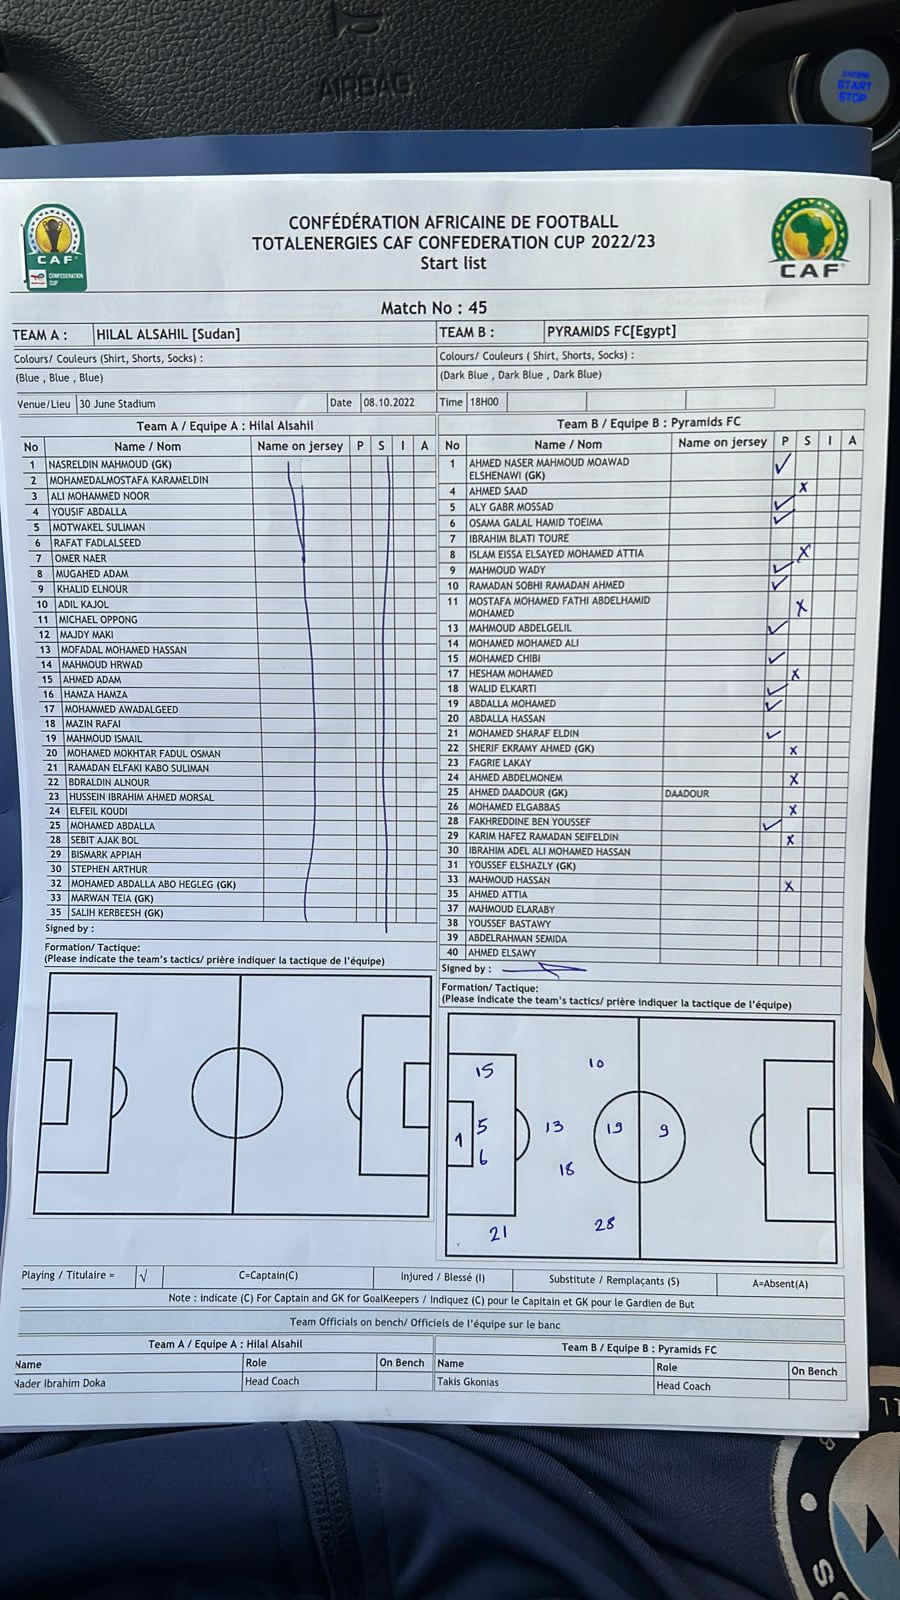 AIRBAG
ENGINE
START
STOP
CAF
CONFEDERATION
CUP
CONFÉDÉRATION AFRICAINE DE FOOTBALL
TOTALENERGIES CAF CONFEDERATION CUP 2022/23
Start list
CAF
Match No : 45
TEAM A : HILAL ALSAHIL [Sudan] TEAM B : PYRAMIDS FC[Egypt]
Colours/ Couleurs (Shirt, Shorts, Socks) : Colours/ Couleurs ( Shirt, Shorts, Socks) :
(Blue , Blue , Blue) (Dark Blue , Dark Blue , Dark Blue)
Venue/Lieu 30 June Stadium Date 08.10.2022 Time 18H00
Team A / Equipe A : Hilal Alsahil
No Name / Nom Name on jersey P S I A
1 NASRELDIN MAHMOUD (GK)
2 MOHAMEDALMOSTAFA KARAMELDIN
3 ALI MOHAMMED NOOR
4 YOUSIF ABDALLA
5 MOTWAKEL SULIMAN
6 RAFAT FADLALSEED
7 OMER NAER
8 MUGAHED ADAM
9 KHALID ELNOUR
10 ADIL KAJOL
11 MICHAEL OPPONG
12 MAJDY MAKI
13 MOFADAL MOHAMED HASSAN
14 MAHMOUD HRWAD
15 AHMED ADAM
16 HAMZA HAMZA
17 MOHAMMED AWADALGEED
18 MAZIN RAFAI
19 MAHMOUD ISMAIL
20 MOHAMED MOKHTAR FADUL OSMAN
21 RAMADAN ELFAKI KABO SULIMAN
22 BDRALDIN ALNOUR
23 HUSSEIN IBRAHIM AHMED MORSAL
24 ELFEIL KOUDI
25 MOHAMED ABDALLA
28 SEBIT AJAK BOL
29 BISMARK APPIAH
30 STEPHEN ARTHUR
32 MOHAMED ABDALLA ABO HEGLEG (GK)
33 MARWAN TEIA (GK)
35 SALIH KERBEESH (GK)
Signed by :
Formation/ Tactique:
(Please indicate the team's tactics/ prière indiquer la tactique de l'équipe)
Team B / Equipe B : Pyramids FC
No Name / Nom Name on jersey P S I A
1 AHMED NASER MAHMOUD MOAWAD
ELSHENAWI (GK) ✓
4 AHMED SAAD x
5 ALY GABR MOSSAD ✓
6 OSAMA GALAL HAMID TOEIMA ✓
7 IBRAHIM BLATI TOURE
8 ISLAM EISSA ELSAYED MOHAMED ATTIA x
9 MAHMOUD WADY ✓
10 RAMADAN SOBHI RAMADAN AHMED ✓
11 MOSTAFA MOHAMED FATHI ABDELHAMID
MOHAMED x
13 MAHMOUD ABDELGELIL ✓
14 MOHAMED MOHAMED ALI
15 MOHAMED CHIBI ✓
17 HESHAM MOHAMED x
18 WALID ELKARTI ✓
19 ABDALLA MOHAMED ✓
20 ABDALLA HASSAN
21 MOHAMED SHARAF ELDIN ✓
22 SHERIF EKRAMY AHMED (GK) x
23 FAGRIE LAKAY
24 AHMED ABDELMONEM x
25 AHMED DAADOUR (GK) DAADOUR
26 MOHAMED ELGABBAS x
28 FAKHREDDINE BEN YOUSSEF ✓
29 KARIM HAFEZ RAMADAN SEIFELDIN x
30 IBRAHIM ADEL ALI MOHAMED HASSAN
31 YOUSSEF ELSHAZLY (GK)
33 MAHMOUD HASSAN x
35 AHMED ATTIA
37 MAHMOUD ELARABY
38 YOUSSEF BASTAWY
39 ABDELRAHMAN SEMIDA
40 AHMED ELSAWY
Signed by :
Formation/ Tactique:
(Please indicate the team's tactics/ prière indiquer la tactique de l'équipe)
15 10
5 13 19 9
1
6 18
21 28
Playing / Titulaire = √ C=Captain(C) Injured / Blessé (I) Substitute / Remplaçants (S) A=Absent(A)
Note : indicate (C) For Captain and GK for GoalKeepers / Indiquez (C) pour le Capitain et GK pour le Gardien de But
Team Officials on bench/ Officiels de l'équipe sur le banc
Team A / Equipe A : Hilal Alsahil Team B / Equipe B : Pyramids FC
Name Role On Bench Name Role On Bench
Nader Ibrahim Doka Head Coach Takis Gkonias Head Coach